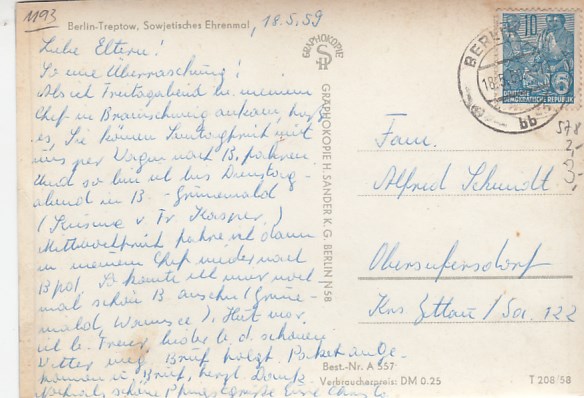 1193
Berlin-Treptow, Sowjetisches Ehrenmal
18.5.59
Liebe Eltern!
So eine Überraschung!
Als ich Freitagabend zu meinem
Chef in Braunschweig ankam, hieß
es, Sie können Sonntagfrüh mit
uns per Wagen nach B. fahren.
Und so bin ich bis Dienstag-
abend in B. - Grunewald
v. Fr. Kaspar.)
Mittwochfrüh fahre ich dann
m meinem Chef wieder nach
So konnte ich mir noch
mal schön B. ansehen (Grune-
wald, Wannsee). Heut vor
d. schönen
Wetter weg. Brief folgt. Paket ange-
kommen u. Brief, herzl. Dank.
Nochmals schöne Pfingstgrüße Eure
GRAPHOKOPIE
GRAPHOKOPIE H. SANDER K. G. BERLIN N 58
BERLIN
18.5.59
bb
10
5
DEUTSCHE
DEMOKRATISCHE REPUBLIK
578
2,-
3,-
Fam.
Alfred Schmidt
Oberseifersdorf
Krs Zittau / Sa. 122
Best.-Nr. A 557
Verbraucherpreis: DM 0.25
T 208/58